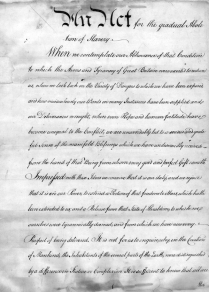 An Act for the gradual Abolition of Slavery
When we contemplate our Abhorrence of that Condition
to which the Arms and Tyranny of Great Britain were exerted to reduce
us, when we look back on the Variety of Dangers to which we have been exposed
and how miraculously our Wants in many Instances have been supplied and
our Deliverances wrought, when even Hope and human fortitude have
become unequal to the Conflict, we are unavoidably led to a serious and grateful
Sense of the manifold Blessings which we have undeservedly received
from the hand of that Being from whom every good and perfect Gift cometh
Impressed with these Ideas we conceive that it is our duty, and we rejoice
that it is in our Power, to extend a Portion of that freedom to others, which hath
been extended to us, and a Release from that State of Thraldom, to which we
ourselves were tyrannically doomed, and from which we have now every
Prospect of being delivered. It is not for us to enquire, why, in the Creation
of Mankind, the Inhabitants of the several parts of the Earth, were distinguished
by a difference in Feature or Complexion. It is sufficient to know that all are